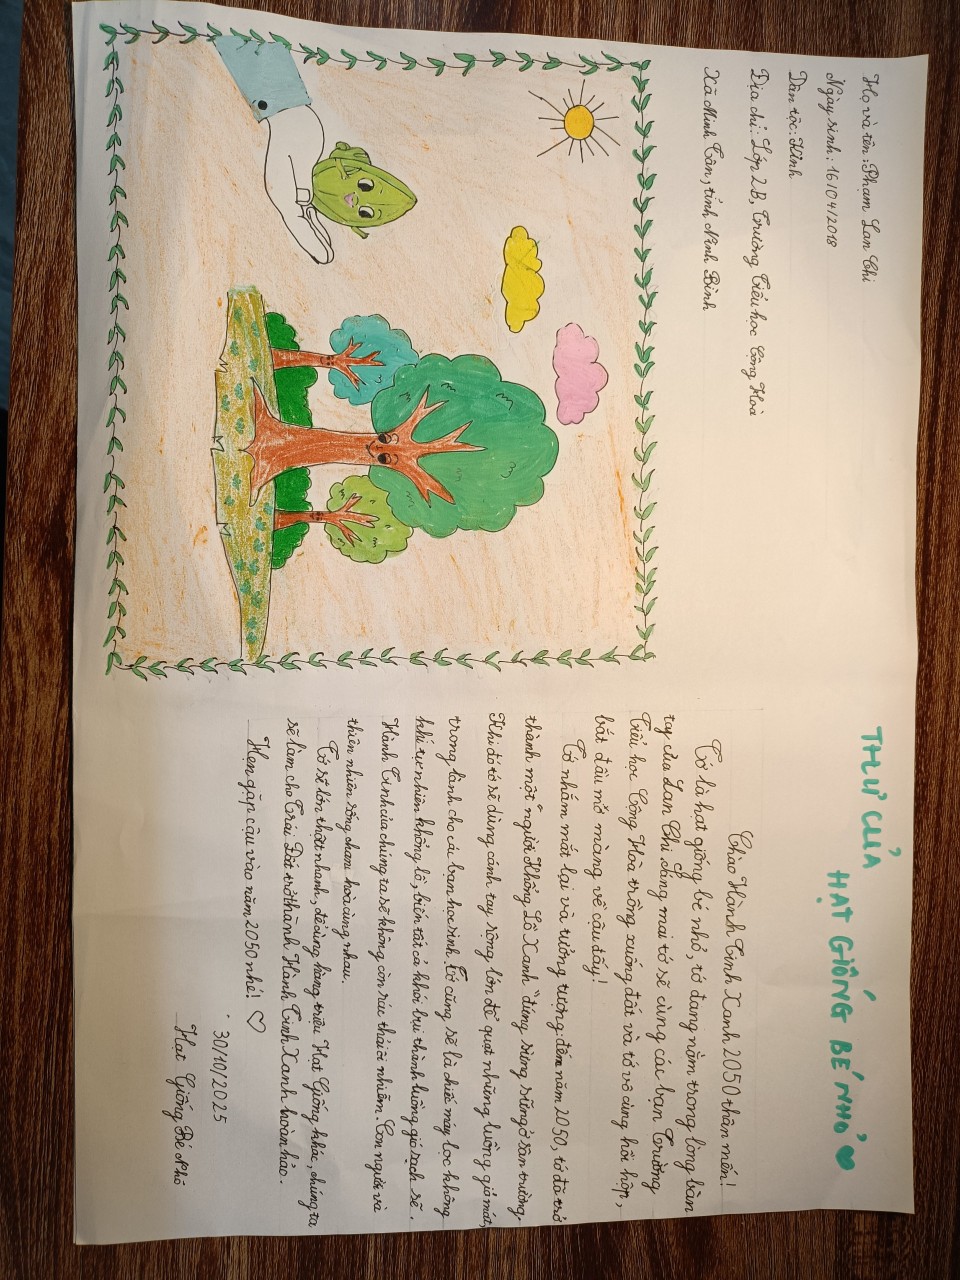 Họ và tên: Phạm Lan Chi
Ngày sinh: 16/04/2018
Dân tộc: Kinh
Địa chỉ: Lớp 2B, Trường Tiểu học Cộng Hoà
Xã Minh Tân, tỉnh Ninh Bình
THƯ CỦA
HẠT GIỐNG BÉ NHỎ
Chào Hành Tinh Xanh 2050 thân mến!
Tớ là hạt giống bé nhỏ, tớ đang nằm trong lòng bàn
tay của Lan Chi sáng mai tớ sẽ cùng các bạn Trường
Tiểu học Cộng Hoà trồng xuống đất và tớ vô cùng hồi hộp,
bắt đầu mơ màng về cậu đấy!
Tớ nhắm mắt lại và tưởng tượng: đến năm 2050, tớ đã trở
thành một "người Khổng Lồ Xanh" đứng sừng sững ở sân trường,
Khi đó tớ sẽ dùng cánh tay rộng lớn để quạt những luồng gió mát,
trong lành cho các bạn học sinh. Tớ cũng sẽ là chiếc máy lọc không
khí tự nhiên khổng lồ, biến tất cả khói bụi thành luồng gió sạch sẽ.
Hành Tinh của chúng ta sẽ không còn rác thải ô nhiễm. Con người và
thiên nhiên sống chan hoà cùng nhau.
Tớ sẽ lớn thật nhanh, để cùng hàng triệu Hạt Giống khác, chúng ta
sẽ làm cho Trái Đất trở thành Hành Tinh Xanh hoàn hảo.
Hẹn gặp cậu vào năm 2050 nhé!
30/10/2025
Hạt Giống Bé Nhỏ